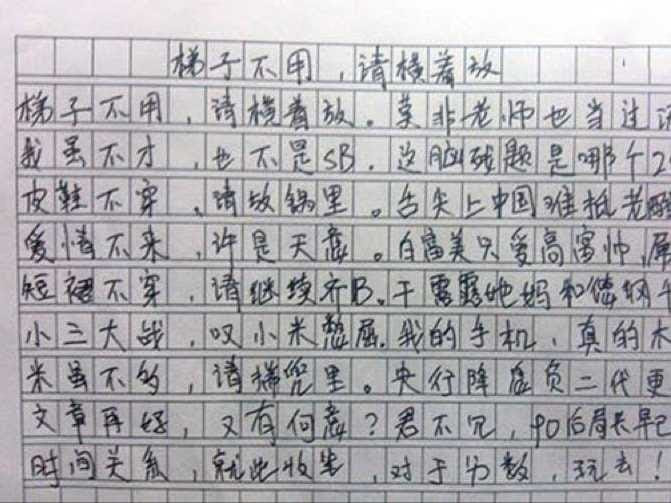 梯子不用,请横着放
梯子不用,请横着放。莫非老师也当过
我虽不才,也不是SB,这脑残题是哪个2
皮鞋不穿,请放锅里。舌尖上中国难抵老酸
爱情不来,许是天意。白富美只爱高富帅,屌
短裙不穿,请继续齐B。干露露她妈和
小三大战,叹小米憋屈。我的手机,真的木
米虽不多,请揣兜里。央行降息负二代更
文章再好,又有何意?君不见,90后局长早已
时间关系,就此收笔,对于分数,玩去!